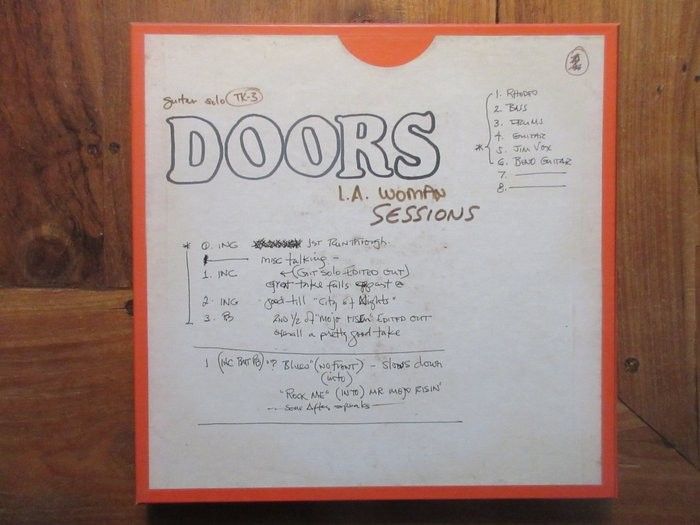 guitar solo TK-3
DOORS
L.A. WOMAN
SESSIONS
1. RHODES
2. BASS
3. DRUMS
4. GUITAR
* 5. JIM VOX
6. BEND GUITAR
7.
8.
* 0. INC 1ST RUNTHROUGH.
misc talking -
1. INC (GIT SOLO EDITED OUT)
great take falls apart
2. INC good till "City of Nights"
3. PB 2ND 1/2 of "MOJO RISIN" EDITED OUT
overall a pretty good take
1 (INC BUT PB) "? Blues" (NO FRONT) - slows down
(into)
"ROCK ME" (INTO) MR MOJO RISIN'
- some After